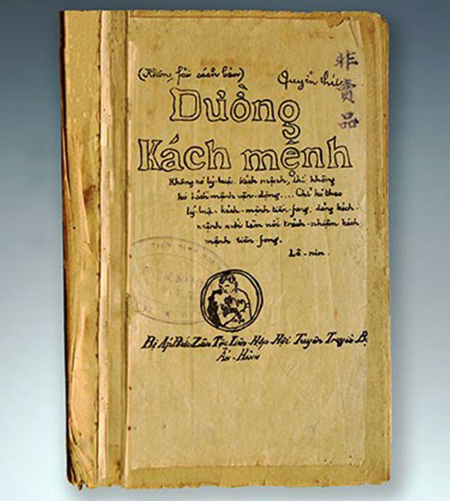 (Không fải sách bán) Quyển thứ
非賣品
Đường
Kách mệnh
Không kó lý-luận kách mệnh, thì không
kó kách mệnh vận-động.... Chỉ kó theo
lý-luận kách-mệnh tiền fong, đảng kách-
mệnh mới làm nổi trách-nhiệm kách
mệnh tiền fong.
Lê-nin.
Bị Áp Bức Zân Tộc Liên Hợp Hội Tuyên Truyền Bộ
Ấn-Hành